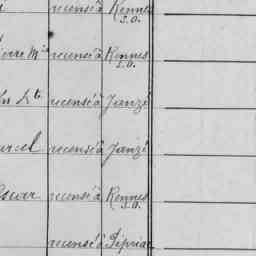 recensé à Rennes
S.O.
ierre Mie recensé à Rennes
S.O.
recensé à Janzé
arcel recensé à Janzé
Oscar recensé à Rennes
S.O.
recensé à Pipriac